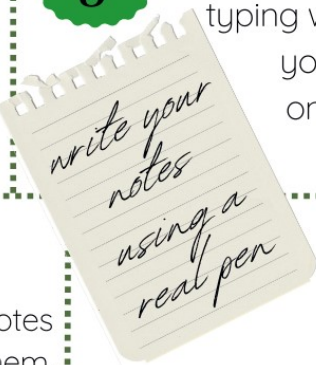 typing
yo
or
write your
notes
using a
real pen
otes